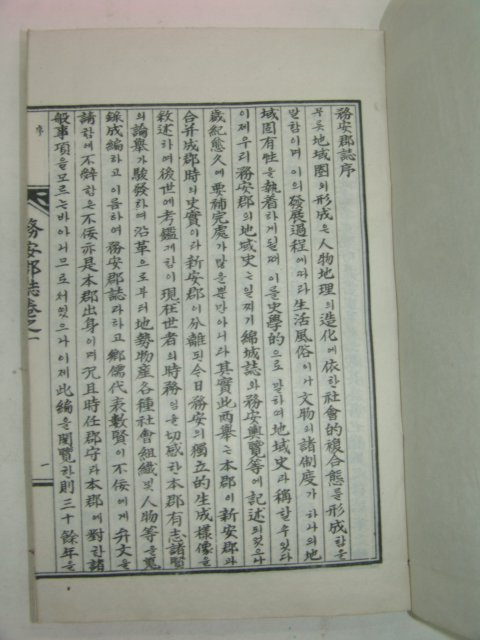 務安郡誌序
무릇地域圈의形成은人物地理의造化에依한社會的複合態를形成함을
말함이며이의發展過程에따라生活風俗이나文物의諸制度가하나의地
域固有性을執着하게될때이를史學的으로말하여地域史라稱할수있다
이제우리務安郡의地域史는일찌기綿城誌와務安輿覽等에記述되었으나
歲紀愈久에要補完處가많을뿐만아니라其實此両擧는本郡이新安郡과
合并成郡時의史實이라新安郡이分離된今日務安의獨立的生成樣像을
敘述하여後世에考鑑게함이現在世者의時務임을切感한本郡有志諸賢
의論擧가駿發하여沿革으로부터地勢物産各種社會組織및人物等을蒐
錄成編하고이음하여務安郡誌라하고鄕儒代表數賢이不佞에게弁文을
請함에不辭함은不佞亦是本郡出身이며況且時任郡守라本郡에對한諸
般事項을모르는바아니므로써였으나이제此編을閱覽한則三十餘年을
序
務安郡誌卷之一
一